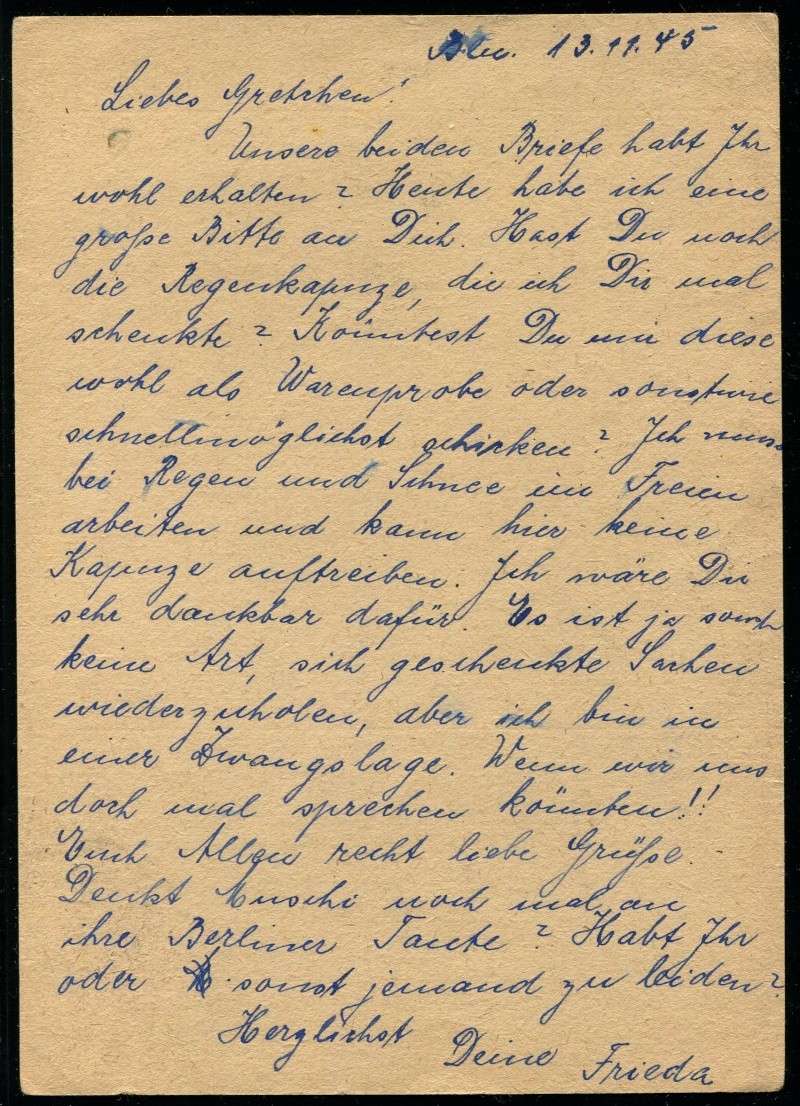 Bln. 13.11.45
Liebes Gretchen!
Unsere beiden Briefe habt Ihr
wohl erhalten? Heute habe ich eine
große Bitte an Dich. Hast Du noch
die Regenkapuze, die ich Dir mal
schenkte? Könntest Du mir diese
wohl als Warenprobe oder sonstwie
schnellmöglichst schicken? Ich muss
bei Regen und Schnee im Freien
arbeiten und kann hier keine
Kapuze auftreiben. Ich wäre Dir
sehr dankbar dafür. Es ist ja sonst
keine Art, sich geschenkte Sachen
wiederzuholen, aber ich bin in
einer Zwangslage. Wenn wir uns
doch mal sprechen könnten!!
Euch Allen recht liebe Grüße.
Denkt Muschi noch mal an
ihre Berliner Tante? Habt Ihr
oder sonst jemand zu leiden?
Herzlichst
Deine Frieda